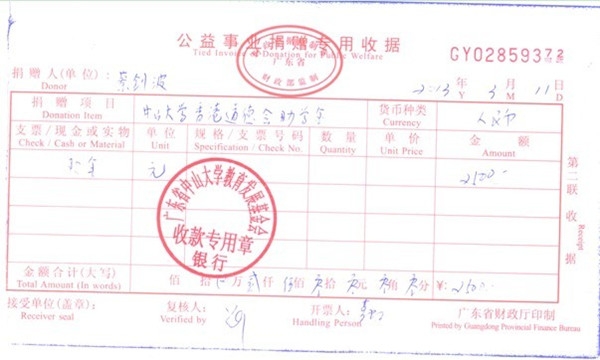 公益事业捐赠专用收据
Tied Invoice Donation for Public Welfare
广东省
财政部监制
GY02859372
捐赠人(单位):
Donor
2013 年 3 月 11 日
Y M D
捐赠项目 中山大学香港 助学金 货币种类 人民币
Donation Item Currency
支票/现金或实物 单位 规格/支票号码 数量 单价 金额
Check / Cash or Material Unit Specification / Check No. Quantity Unit Price Amount
元 2500.-
广东省中山大学教育发展基金会
收款专用章
银行
金额合计(大写) 佰 拾 万 贰仟 伍佰 零拾 零元 零角 零分 ¥: 2500.-
Total Amount (In words)
接受单位(盖章): 复核人: 开票人: 广东省财政厅印制
Receiver seal Verified by Handling Person Printed by Guangdong Provincial Finance Bureau
第二联 收据
Receipt